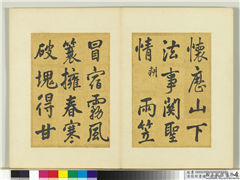 懷應山下
法事關聖
情耕雨笠
冒宿霧風
蓑擁春寒
破塊得甘